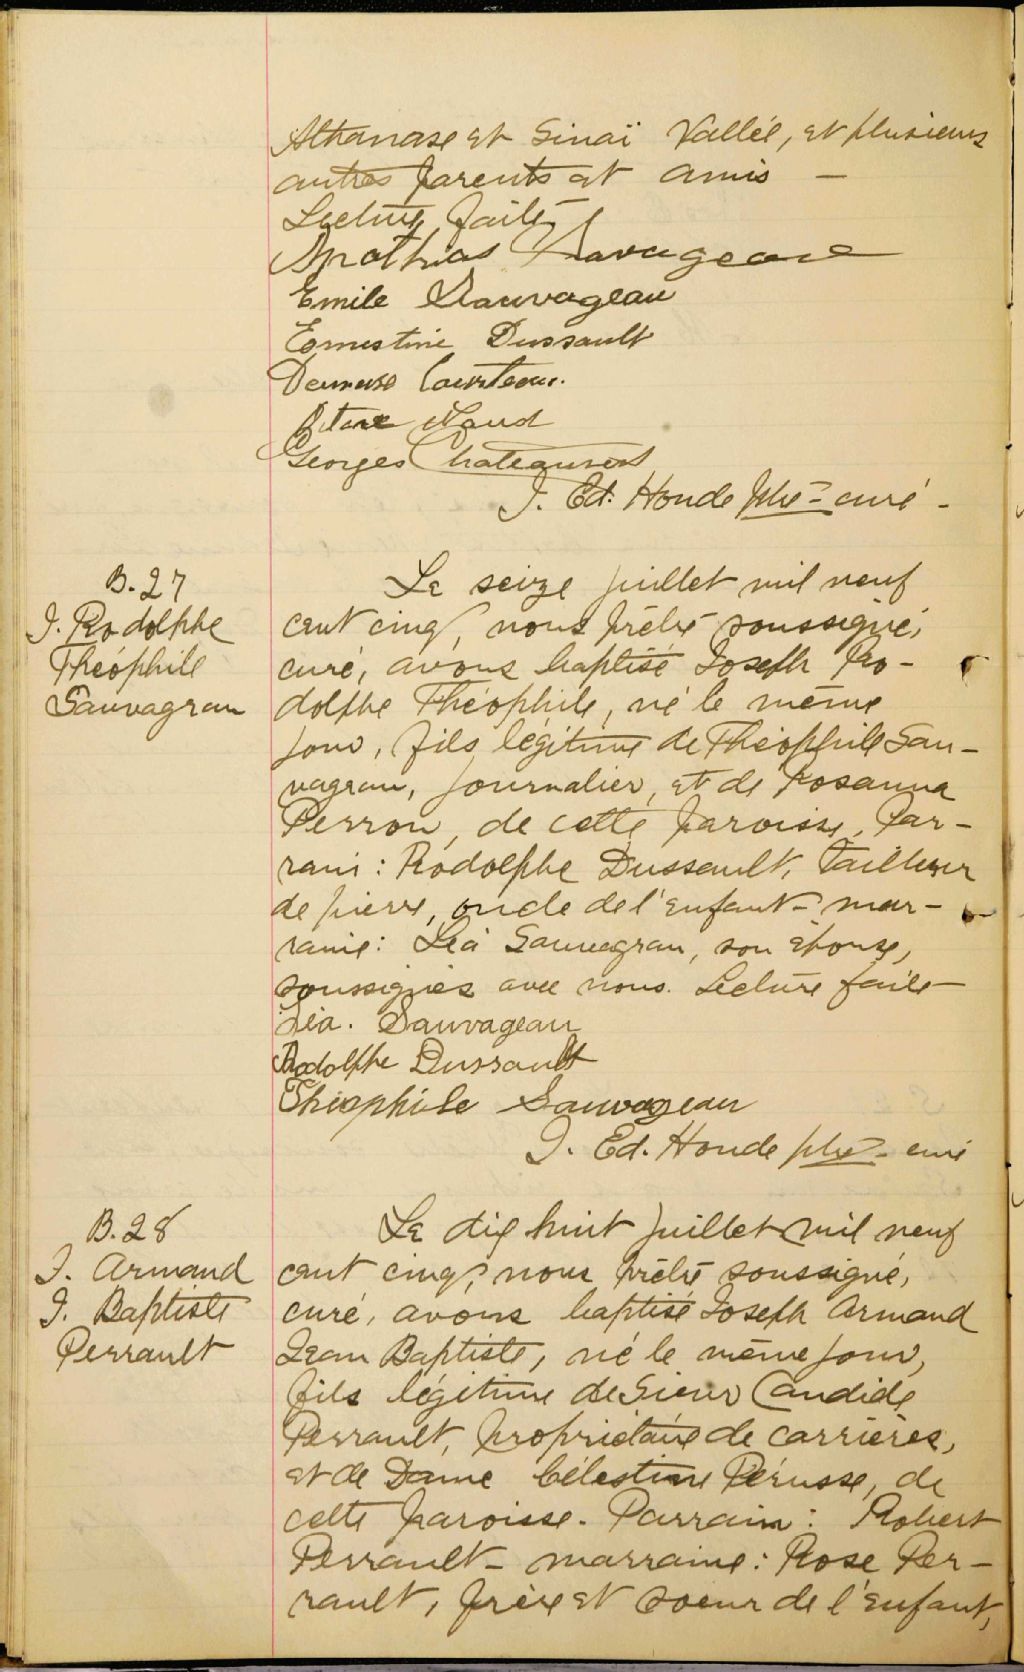 Athanase et Sinaï Vallée, et plusieurs
autres parents et amis —
Lecture faite
Mathias Sauvageau
Emile Sauvageau
Ernestine Dussault
Georges Chateauvert
J. Ed. Houde ptre - curé -
B. 27
J. Rodolphe
Théophile
Sauvageau
Le seize juillet mil neuf
cent cinq, nous prêtre soussigné,
curé, avons baptisé Joseph Ro-
dolphe Théophile, né le même
jour, fils légitime de Théophile Sau-
vageau, journalier, et de Rosanna
Perron, de cette paroisse, Par-
rain : Rodolphe Dussault, tailleur
de pierre, oncle de l'enfant - mar-
raine : Léa Sauvageau, son épouse,
soussignés avec nous. Lecture faite
Léa. Sauvageau
Rodolphe Dussault
Théophile Sauvageau
J. Ed. Houde ptre - curé
B. 28
J. Armand
J. Baptiste
Perrault
Le dix huit juillet mil neuf
cent cinq, nous prêtre soussigné,
curé, avons baptisé Joseph Armand
Jean Baptiste, né le même jour,
fils légitime de Sieur Candide
Perrault, propriétaire de carrières,
et de Dame Célestine Pérusse, de
cette paroisse. Parrain : Robert
Perrault - marraine : Rose Per-
rault, frère et soeur de l'enfant,